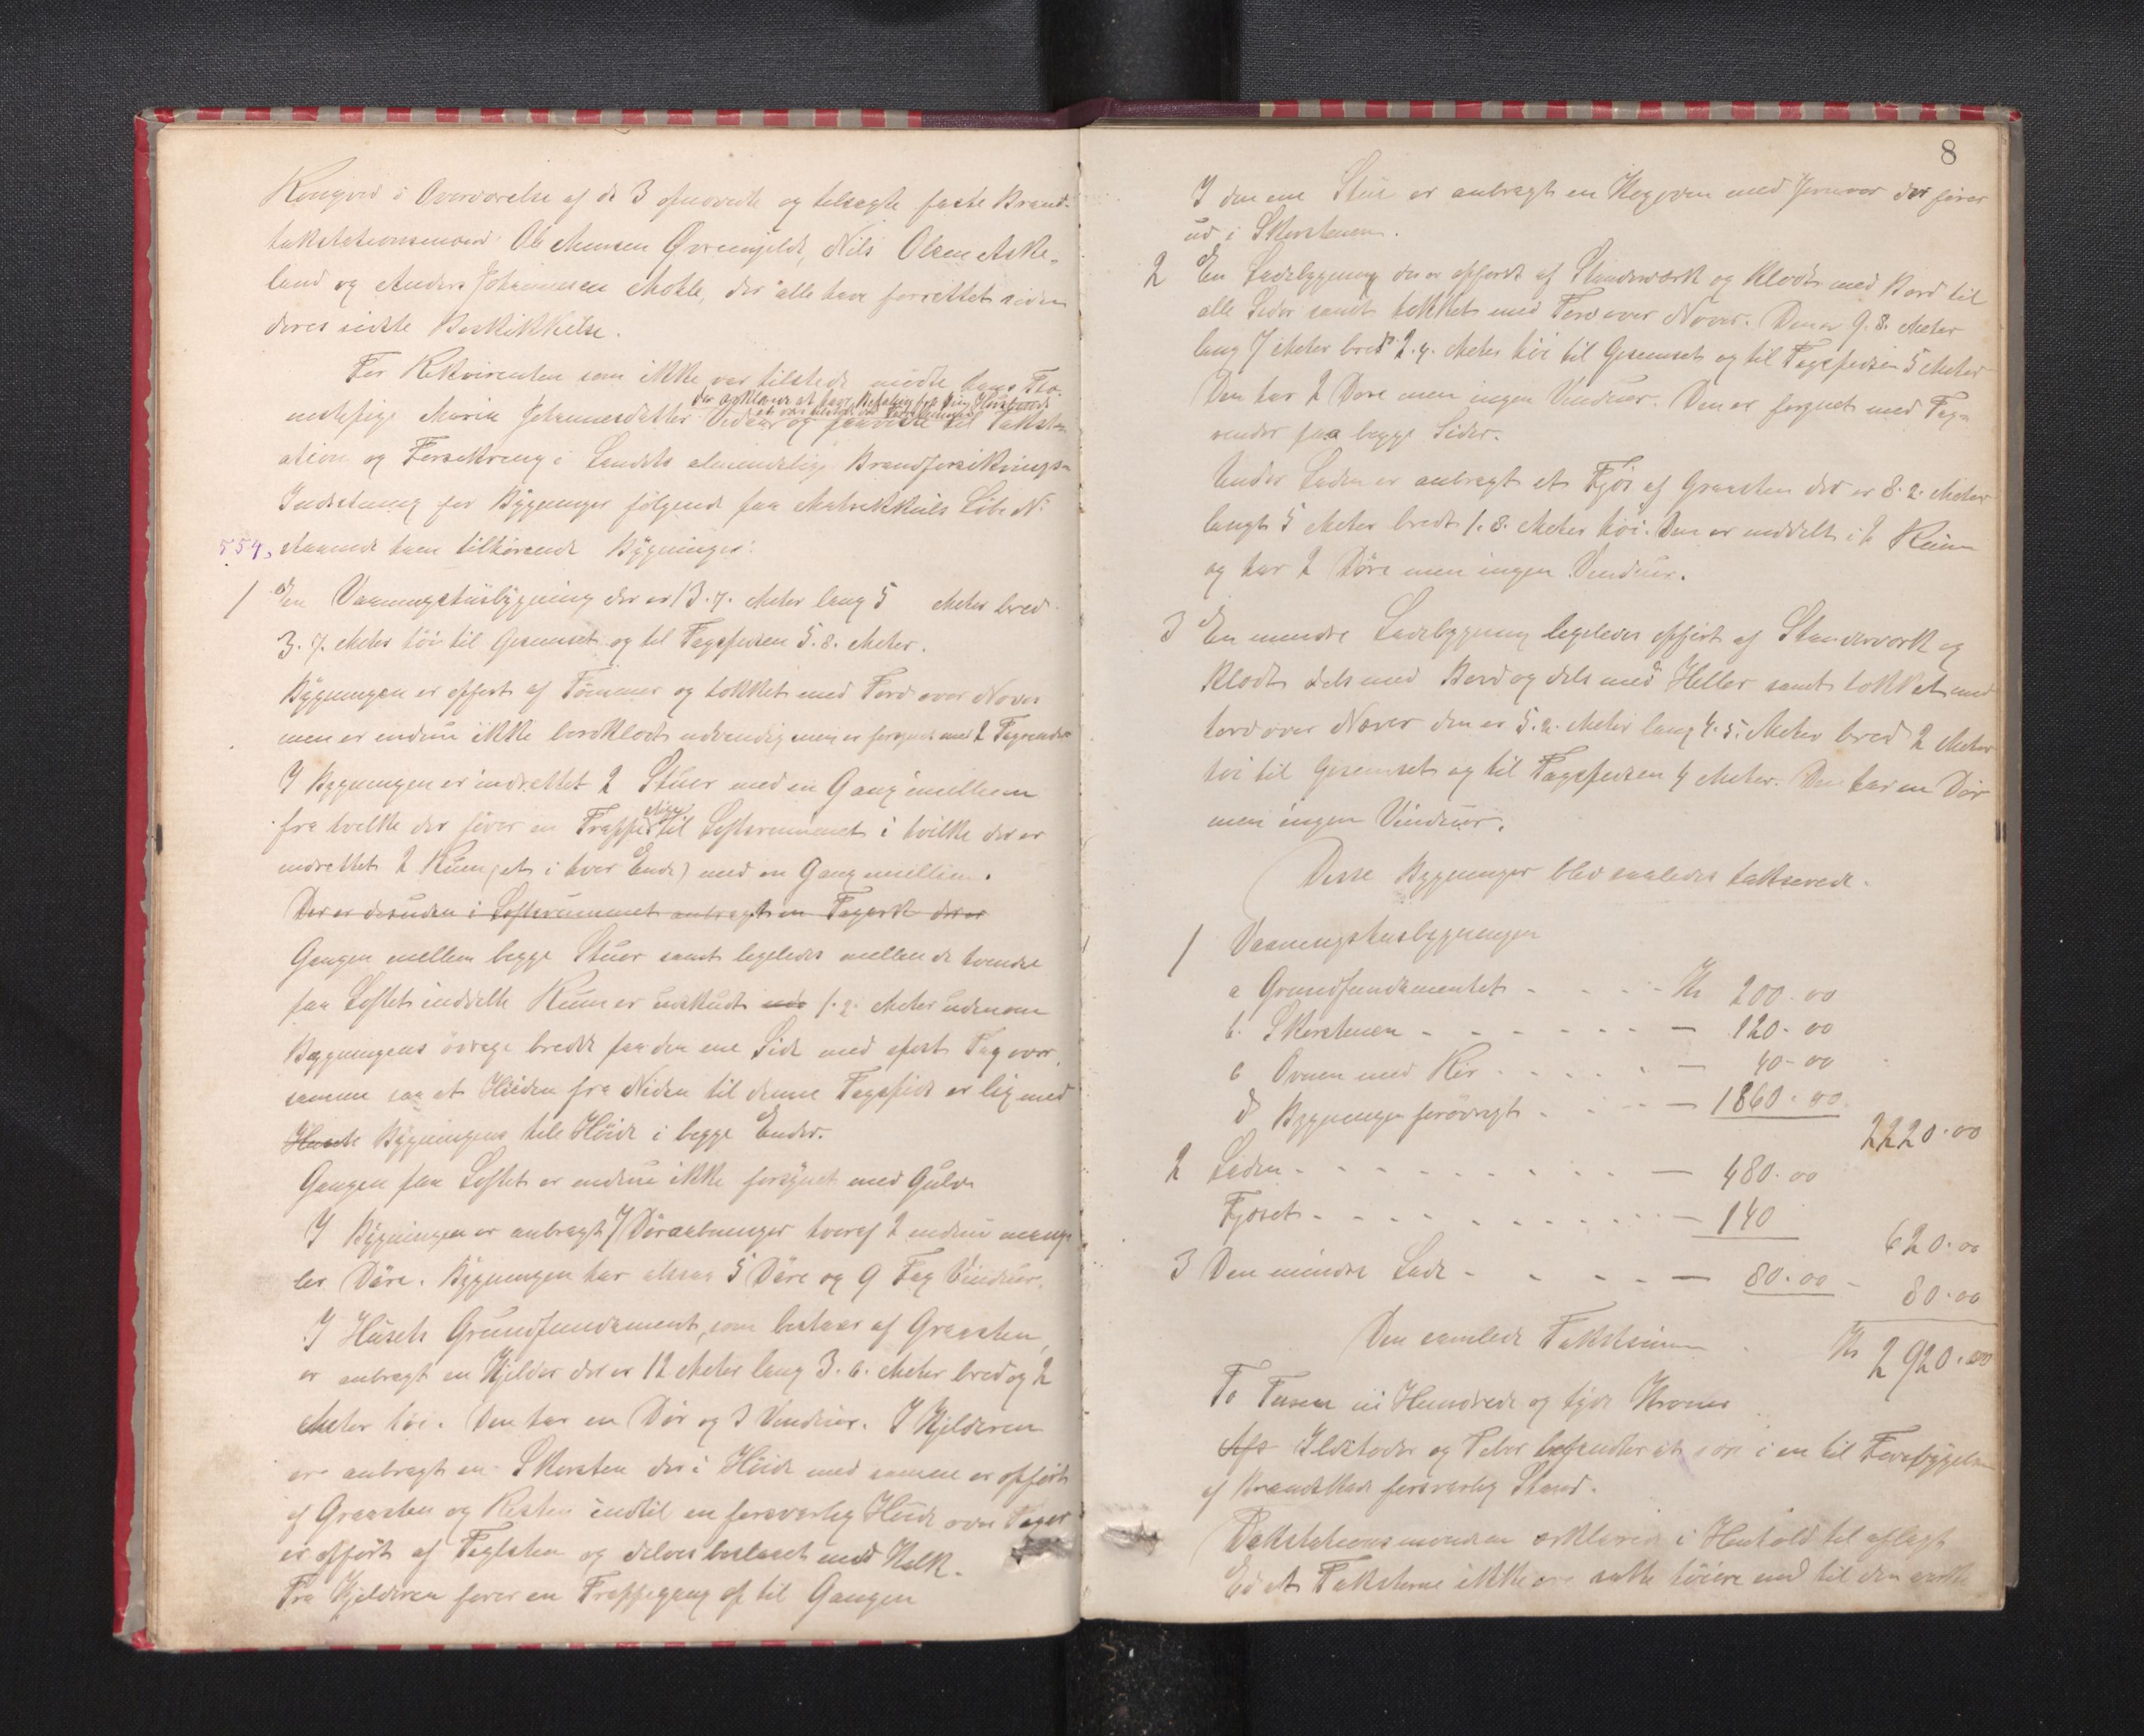 Kongvid i Overværelse af de 3 opnævnte og tilsagte faste Brand-
takstationsmænd Ole Monsen Øvremjelde, Nils Olsen Aske-
land og Anders Johannesen Mohle, der alle have forrettet siden
deres sidste Beskikkelse.
For Rekvirenten som ikke var tilstede mødte hans
der erklærede at have Befaling fra sin Huusbonde
nestepige Maria Johannesdatter Vedaa og paaviste til Takst-
ation og Forsikring i Landets almindelige Brandforsikrings-
Indretning for Bygninger følgende paa Matrikkuls Løbe No
554, staaende ham tilhørende Bygninger:
1 En Vaaningshusbygning der er 13.7. Meter lang 5 Meter bred
3.7. Meter høi til Gesemset og til Tagspidsen 5.8. Meter.
Bygningen er opført af Tømmer og tækket med Torv over Næver
men er endnu ikke bordklædt udvendig men er forsynet med 2 Tagrender
I Bygningen er indrettet 2 Stuer med en Gang imellem
fra hvilke der fører en Trappe til Loftsrummet i hvilke der er
indrettet 2 Rum (et i hver Ende) med en Gang imellem.
Der er desuden i Loftsrummet anbragt en Tagark der er
Gangen mellem begge Stuer samt ligeledes mellem de tvende
paa Loftet inddelte Rum er udskudt 1.2. Meter udenom
Bygningens øvrige bredde paa den ene Side med opført Tag over
samme saa at Høiden fra Neden til denne Tagspids er lig med
Husets Bygningens hele Høide i begge Ender.
Gangen paa Loftet er endnu ikke forsynet med Gulv.
I Bygningen er anbragt 7 Døraabninger hvoraf 2 endnu mang-
ler Døre. Bygningen har altsaa 5 Døre og 9 Fag Vinduer.
I Husets Grundfundament, som bestaar af Graasten,
er anbragt en Kjelder der er 12 Meter lang 3.6. Meter bred og 2
Meter høi. Den har en Dør og 3 Vinduer. I Kjelderen
er anbragt en Skorsten der i Høide med samme er opført
af Graasten og Resten indtil en forsvarlig Høide over Taget
er opført af Teglsten og delvis beslaaet med Kalk.
Fra Kjelderen fører en Trappegang op til Gangen
8
I den ene Stue er anbragt en Kogeovn med Jernrør der fører
ud i Skorstenen.
2 En Ladebygning der er opført af Standerværk og klædt med Bord til
alle Sider samt tækket med Torv over Næver. Den er 9.8. Meter
lang 7 Meter bred 2.4. Meter høi til Gesemset og til Tagspidsen 5 Meter
Den har 2 Døre men ingen Vinduer. Den er forsynet med Tag-
render paa begge Sider.
Under Laden er anbragt et Fjøs af Graasten der er 8.2. Meter
langt 5 Meter bredt 1.8. Meter høi. Den er inddelt i 2 Rum
og har 2 Døre men ingen Vinduer.
3 En mindre Ladebygning ligeledes opført af Standerværk og
klædt dels med Bord og dels med Heller samt tækket med
torv over Næver den er 5.2. Meter lang 4.5. Meter bred 2 Meter
høi til Gesemset og til Tagspidsen 4 Meter. Den har en Dør
men ingen Vinduer.
Disse Bygninger blev saaledes takserede.
1 Vaaningshusbygningen
a Grundfundamentet - - - - Kr 200.00
b. Skorstenen - - - - - - — 120.00
c Ovnen med Rør - - - - - — 40-00
d Bygningen forøvrigt - - - — 1860.00
2220.00
2 Laden - - - - - - - - — 480.00
Fjøset - - - - - - - - — 140
620.00
3 Den mindre Lade - - - - — 80.00 -
80.00
Den samlede Takstsum Kr 2920.00
To Tusen ni Hundrede og tyve Kroner
Ildsteder og Piber befandtes at være i en til Forebyggelse
af Brandskade forsvarlig Stand.
Takstationsmændene erklærede i Henhold til aflagt
Ed at Taksterne ikke ere satte høiere end til den